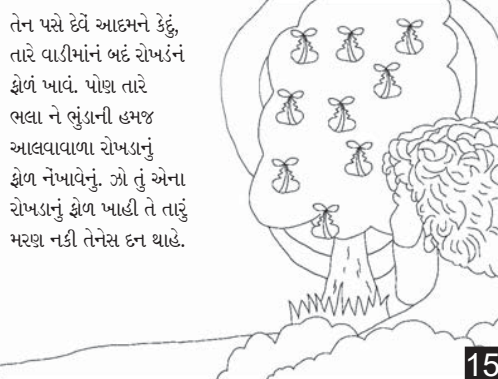 તેન પસે દેવેં આદમને કેદું,
તારે વાડીમાંનં બદં રોખડંનં
ફોળં ખાવં. પોણ તારે
ભલા ને ભુંડાની હમજ
આલવાવાળા રોખડાનું
ફોળ નેંખાવેનું. ઝો તું એના
રોખડાનું ફોળ ખાહી તે તારું
મરણ નકી તેનેસ દન થાહે.
15